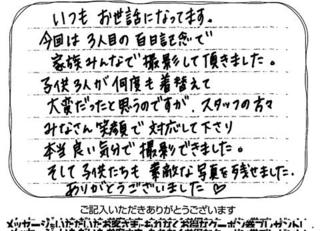 いつもお世話になってます。
今回は3人目の百日記念で
家族みんなで撮影して頂きました。
子供3人が何度も着替えて
大変だったと思うのですが、スタッフの方々
みなさん笑顔で対応して下さり
本当良い気分で撮影できました。
そして子供たちも素敵な写真を残せました。
ありがとうございました♡
ご記入いただきありがとうございます
メッセージいただいたお客さまにもれなくお得なクーポン券プレゼント